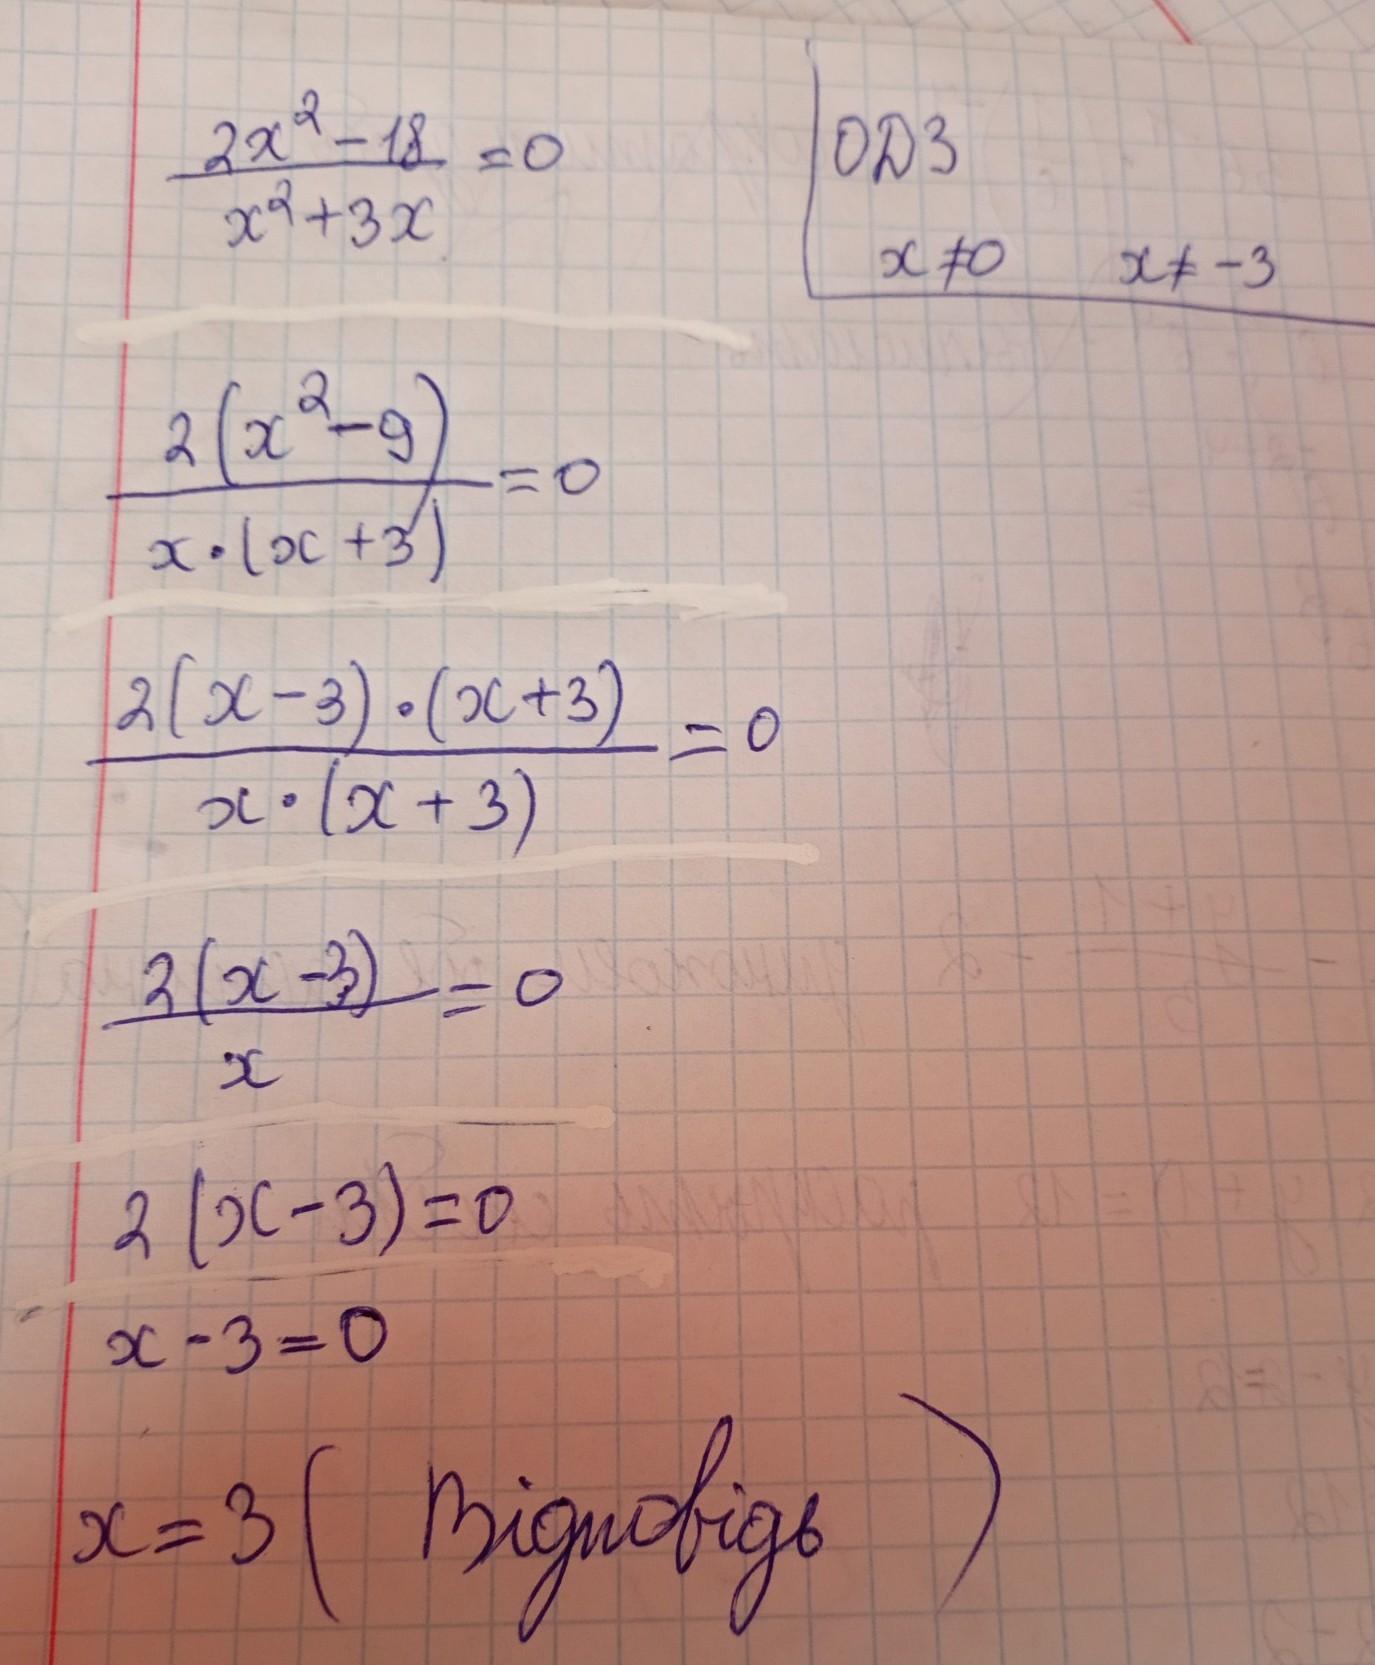 2x² - 18 / x² + 3x = 0
ОДЗ
x ≠ 0 x ≠ -3
2(x² - 9) / x · (x + 3) = 0
2(x - 3) · (x + 3) / x · (x + 3) = 0
2(x - 3) / x = 0
2(x - 3) = 0
x - 3 = 0
x = 3 (Відповідь)